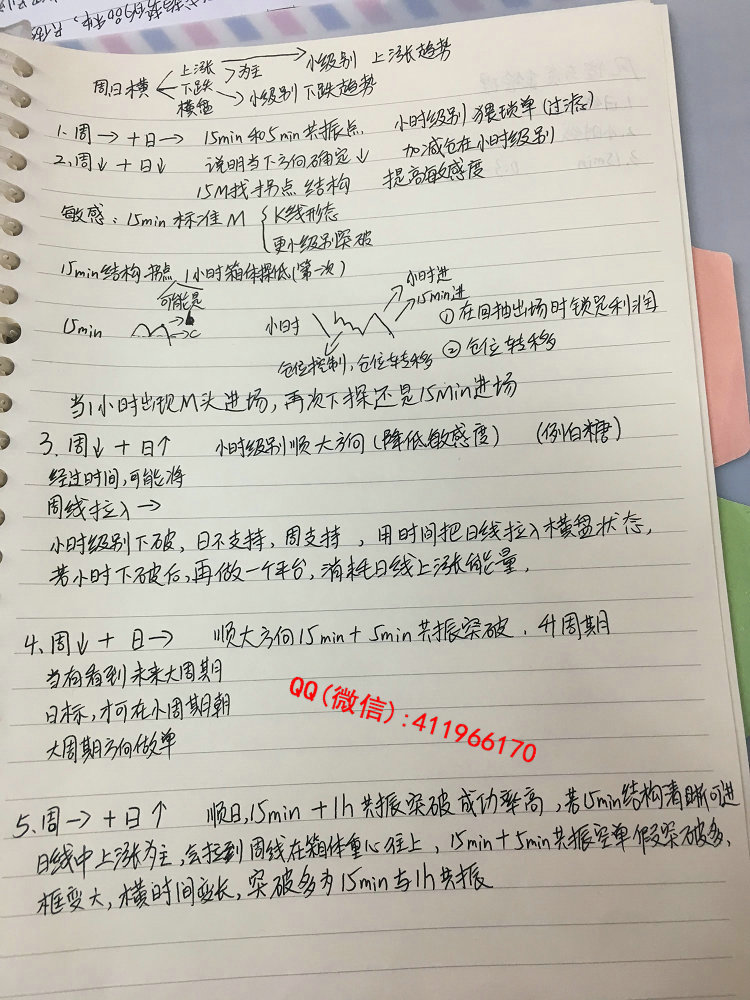 上涨
周日横 下跌 为主 小级别 上涨趋势
横盘 小级别 下跌趋势
1. 周→+日→ 15min和5min共振点. 小时级别 猥琐单(过滤)
2. 周↓+日↓ 说明当下方向确定↓ 加减仓在小时级别
15M找拐点 结构 提高敏感度
敏感: 15min 标准M K线形态
更小级别突破
15min结构 拐点 1小时箱体探低(第一次)
可能是
15min C 小时 小时进
15min进
① 在回抽出场时锁足利润
仓位控制,仓位转移 ② 仓位转移
当1小时出现M头进场,再次下探还是15min进场
3. 周↓+日↑ 小时级别顺大方向(降低敏感度) (例白糖)
经过时间,可能将
周线拉入→
小时级别下破,日不支持,周支持,用时间把日线拉入横盘状态,
若小时下破后,再做一个平台,消耗日线上涨能量.
4. 周↓+日→ 顺大方向15min+5min共振突破. 4周期
当有看到未来大周期
目标,才可在小周期朝
大周期方向做单
QQ(微信):411966170
5. 周→+日↑ 顺日,15min+1h共振突破成功率高,若15min结构清晰可进
日线中上涨为主,会拉到周线在箱体重心往上,15min+5min共振空单假突破多.
框变大,横时间变长,突破多为15min与1h共振